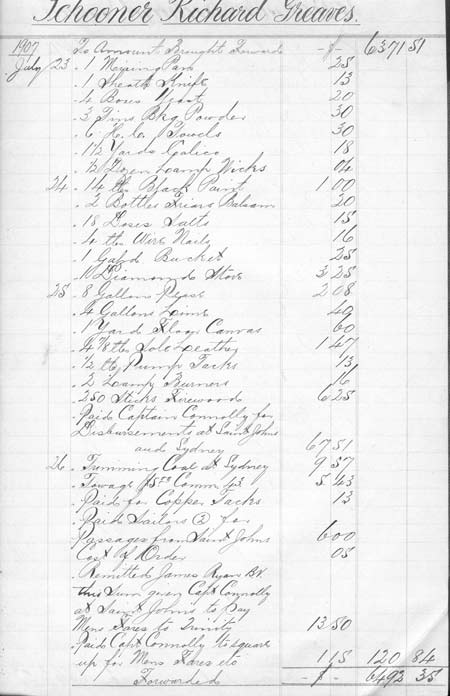 Schooner Richard Greaves.
1907 To Amount Brought Forward 6371 51
July 23 . 1 Mixing Pan 25
. 1 Sheath Knife 13
. 4 Boxes Yeast 20
. 3 Tins Bkg Powder 30
. 6 H. C. Towels 30
. 1½ Yards Calico 18
. ½ Dozen Lamp Wicks 06
24 . 14 lbs Black Paint 1 00
. 2 Bottles Friars Balsam 20
. 18 Doses Salts 15
. 4 lbs Wire Nails 16
. 1 Galvd Bucket 25
. Diamond Stove 3 25
25 . 8 Gallons Pease 2 08
. 4 Gallons Lime 49
. 1 Yard Flag Canvas 60
. 4 1/8 lbs Sole Leather 1 47
. ½ lb Pump Tacks 13
. 2 Lamp Burners 16
. 250 Sticks Firewood 6 25
. Paid Captain Connolly for
Disbursements at Saint Johns
and Sydney 67 51
26 . Trimming Coal at Sydney 9 57
. Towage Comm 5 43
. Paid for Copper Tacks 13
. Paid Sailors (2) for
Passages from Saint Johns 6 00
Cost of Order 05
. Remitted James Ryan
this Sum given Capt Connolly
at Saint Johns to Pay
Mens Fares to Trinity 13 50
. Paid Capt Connolly to square
up for Mens Fares etc 1 15 120 84
Forwarded 6492 35